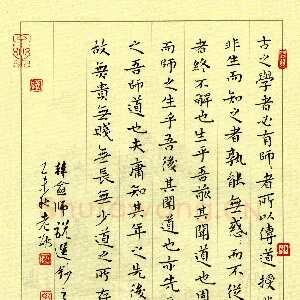 古之學者必有師々者所以傳道授
非生而知之者孰能無惑惑而不從
者終不解也生乎吾前其聞道也
而師之生乎吾後其聞道也亦先
之吾師道也夫庸知其年之先後
故無貴無賤無長無少道之所存
韓愈師說選鈔